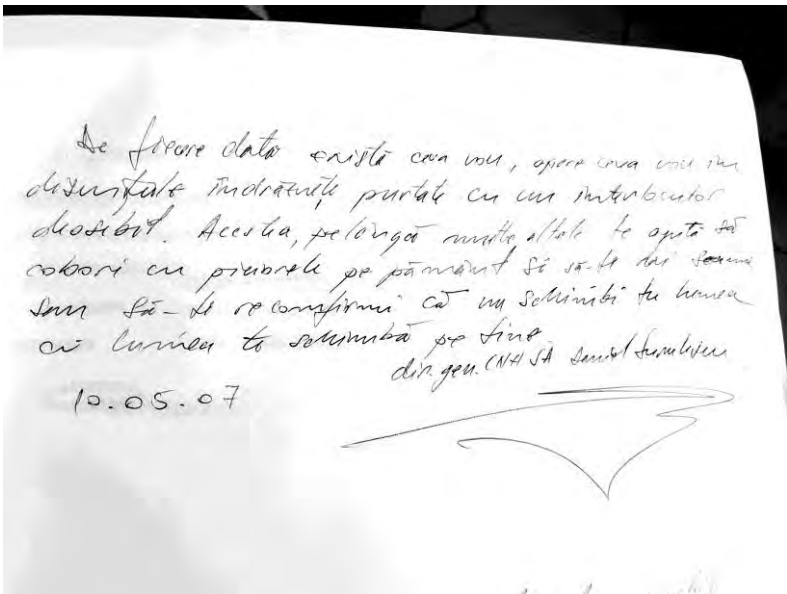 De fiecare dată există ceva nou, apare ceva nou în
discuțiile îndrăznețe purtate cu un interlocutor
deosebit. Acestea, pe lângă multe altele te ajută să
cobori cu picioarele pe pământ și să-ți dai seama
sau să-ți reconfirmi că nu schimbi tu lumea
ci lumea te schimbă pe tine
dir. gen. CNH SA
10.05.07